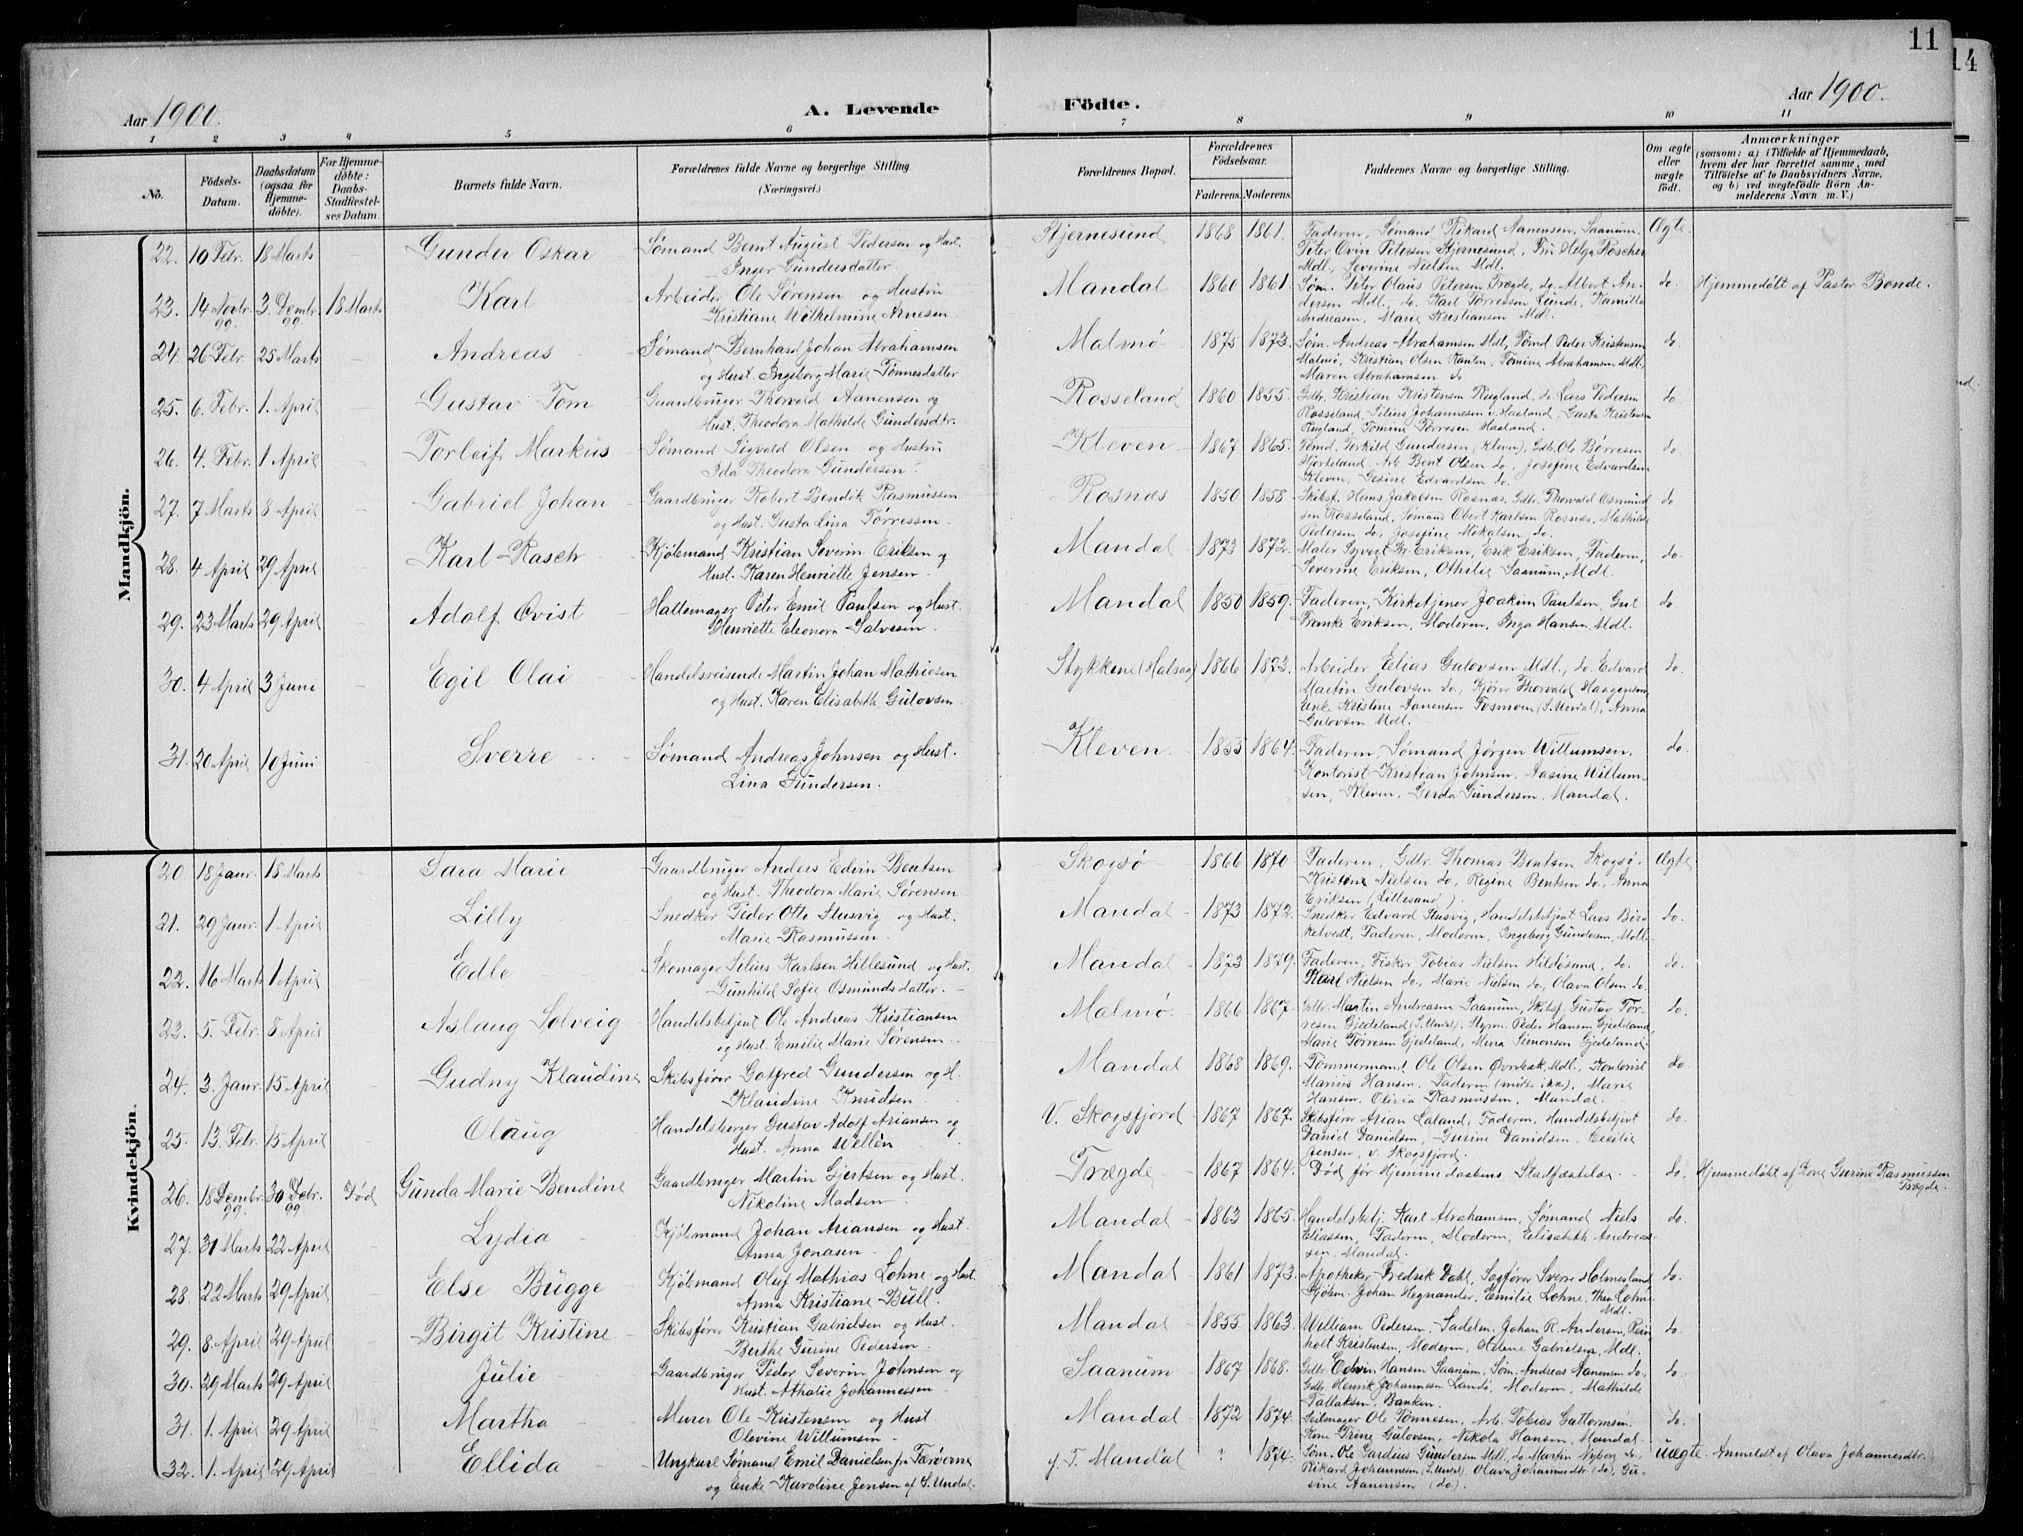 11
14
Aar 1900.
A. Levende
Födte.
Aar 1900.
1 2 3 4 5 6 7 8 9 10 11
No.
Födsels-Datum.
Daabsdatum (ogsaa for Hjemme-döbte).
For Hjemme-döbte: Daabs-Stadfæstel-ses Datum.
Barnets fulde Navn.
Forældrenes fulde Navne og borgerlige Stilling.
(Næringsvei.)
Forældrenes Bopæl.
Forældrenes Födselsaar.
Faderens. Moderens.
Faddernes Navne og borgerlige Stilling.
Om ægte eller uægte födt.
Anmærkninger
(saasom: a) i Tilfælde af Hjemmedaab, hvem der har forrettet samme, med Tilföielse af to Daabsvidners Navne, og b) ved uægtefödte Börn An-melderens Navn m. V.)
Mandkjön.
22. 10 Febr. 18 Marts Gunder Oskar Sømand Bernt August Pedersen og Hust. Inger Gundersdatter Stjernesund 1868 1861. Faderen, Sømand Rikard Aanensen, Saanum, Peter Ovin Petersen Stjernesund, Fru Helga Roscher Mdl., Severine Nielsen Mdl. Ægte
23. 14 Novbr. 99. 3 Dembr. 99 18 Marts Karl Arbeider Ole Sørensen og Hustru Kristiane Wilhelmine Arnesen Mandal 1860 1861. Søm. Peter Olaus Petersen Trægde, do. Albert Andersen Mdl., do. Karl Tørressen Lunde, Kamilla Andreasen, Marie Kristiansen Mdl. do. Hjemmedøbt af Pastor Bonde.
24. 26 Febr. 25 Marts Andreas Sømand Bernhard Johan Abrahamsen og Hust. Ingeborg Marie Tønnesdatter Malmø 1875 1873. Søm. Andreas Abrahamsen Mdl., Tømd Peder Kristensen Malmø, Kristian Olsen, Tomine Abrahamsen Mdl., Maren Abrahamsen do do.
25. 6. Febr. 1. April Gustav Tom Gaardbruger Thorvald Aanensen og Hust. Theodora Mathilde Gundersdtr. Rosseland 1860 1855. Gdbr. Kristian Kristensen Rugland, do. Lars Pedersen Rosseland, Silius Johannesen v. Haaland, Gusta Kristensen Rugland, Tomine Tørresen Haaland. do.
26. 4. Febr. 1 April Torleif Markus Sømand Sigvald Olsen og Hustru Ida Theodora Gundersen. Kleven 1867 1865. Tømd. Terkild Gundersen (Kleven), Gdb. Ole Børresen Hjorteland, Arb. Bent Olsen do., Josefine Edvardsen Kleven, Gesine Edvardsen do. do.
27. 7 Marts 8 April Gabriel Johan Gaardbruger Robert Bendik Rasmussen og Hust. Gusta Lina Tørressen Rosnæs 1850 1858 Skibsf. Hans Jakobsen Rosnæs, Gdb. Thorvald Osmundsen Rosseland, Sømand Obert Karlsen Rosnæs, Mathilde Pedersen do., Josefine Mikalsen do. do
28. 4 April 29 April Karl Rasch Kjøbmand Kristian Severin Eriksen og Hust. Karen Henriette Jensen Mandal 1873 1872. Maler Syvert Kr. Eriksen, Erik Eriksen, Faderen, Severine Eriksen, Othilie Saanum, Mdl. do.
29. 23 Marts 29 April Adolf Qvist Hattemager Peter Emil Paulsen og Hust. Henriette Eleonora Salvesen Mandal 1850 1859. Faderen, Kirketjener Joakim Paulsen, Gul Franke Eriksen, Moderen, Inga Hansen Mdl. do.
30. 4 April 3 Juni Egil Olai Handelsreisende Martin Johan Mathiesen og Hust. Karen Elisabeth Gulovsen Stykkene (Halsaa) 1866 1873. Arbeider Elias Gulovsen Mdl., do. Edvard Martin Gulovsen do., Kjører Thorvald Haagensen, Enke Kristine Aanensen Fosmoen (S.Undal), Anna Gulovsen Mdl. do.
31. 20 April 10 Juni Sverre Sømand Andreas Johnsen og Hust. Lina Gundersen. Kleven 1855 1864. Faderen, Sømand Jørgen Willumsen, Kontorist Kristian Johnsen, Aasine Willumsen, Kleven, Gerda Gundersen, Mandal. do.
Kvindekjön.
20 18 Janr. 18 Marts Sara Marie Gaardbruger Anders Edvin Bentsen og Hust. Theodora Marie Sørensen Skogsø 1866 1870 Faderen, Gdbr. Thomas Bentsen Skogsø, Kristine Nielsen do., Regine Bentsen do., Anna Eriksen (Lillesand). Ægte
21. 29 Janr. 1 April Lilly Snedker Peder Otto Stusvig og Hust. Marie Rasmussen Mandal 1873 1872. Snedker Edvard Stusvig, Handelsbetjent Lars Birketvedt, Faderen, Moderen, Ingeborg Gundersen, Mdl. do.
22. 16 Marts 1 April Edle Skomager Silius Karlsen Hillesund og Hust. Gunhild Sofie Osmundsdatter. Mandal 1873 1879. Faderen, Fisker Tobias Nielsen Hildøsund, do. Karl Nielsen do., Marie Nielsen do., Olava Olsen do. do.
23. 5. Febr. 8 April Aslaug Solveig Handelsbetjent Ole Andreas Kristiansen og Hust. Emilie Marie Sørensen Malmø. 1866 1867. Gdbr. Martin Andreasen Saanum, Skibsf. Gustav Tørresen Gjedeland (S.Undal), Styrm. Peder Hansen Gjedeland, Marie Tørresen Gjedeland, Mina Simonsen Gjedeland. do.
24. 3. Janr. 15 April Gudny Klaudine Skibsfører Gotfred Gundersen og H. Klaudine Knudsen Mandal 1868 1869. Tømmermand Ole Olsen Øvrebæk, Mdl., Kontorist Marius Hansen, Faderen (mødte ikke), Marie Hansen, Olivia Rasmussen, Mandal. do
25. 13. Febr. 15 April Olaug Handelsborger Gustav Adolf Ariansen og Hust. Anna Wellén V. Skogsfjord 1867 1867. Skibsfører Arian Laland, Faderen, Handelsbetjent David Danielsen, Gurine Danielsen, Cecilie Jensen, v. Skogsfjord. do.
26. 18 Dembr. 99. 30 Debr. 99 Død Gunda Marie Bendine Gaardbruger Martin Gjertsen og Hust. Nikoline Madsen Trægde 1867 1864. Død før Hjemmedaabens Stadfæstelse do. Hjemmedøbt af Kone Gurine Rasmussen Trægde.
27. 31 Marts 22 April Lydia Kjøbmand Johan Ariansen og Hust. Anna Jonasen Mandal 1863 1865. Handelsbetj. Karl Abrahamsen, Sømand Niels Eliassen, Faderen, Moderen, Elisabeth Andreassen, Mandal. do.
28. 22 Marts 29 April Else Bugge Kjøbmand Oluf Mathias Lohne og Hust. Anna Kristiane Bull. Mandal 1861 1873. Apotheker Fredrik Dahl, Sagfører Sverre Holmesland, Kjøbm. Johan Hegnander, Emilie Lohne, Thea Lohne Mdl. do.
29. 8 April 29 April Birgit Kristine Skibsfører Kristian Gabrielsen og Hust. Berthe Gurine Pedersen Mandal 1855 1863. William Pedersen, Sadelm. Johan R. Andersen, Reinholt Kristensen, Moderen, Helene Gabrielsen, Mdl. do.
30. 29 Marts 29 April Julie Gaardbruger Peder Severin Johnsen og Hust. Athalie Johannessen Saanum 1867 1868. Gdbr. Edvin Hansen Saanum, Søm. Andreas Aanensen do, Gdbr. Henrik Johannesen Landø, Moderen, Mathilde Tallaksen, Banken. do.
31. 1. April 29 April Martha Murer Ole Kristensen og Hust Olevine Willumsen Mandal 1872 1874. Seilmager Ole Tønnesen, Arb. Tobias Guttormsen, Kone Trine Gulovsen, Nikola Hansen, Mandal do.
32. 1. April 29 April Ellida Ungkarl Sømand Emil Danielsen fra Færøerne og Enke Karoline Jensen af S. Undal. f. T. Mandal ? 1874. Søm. Ole Gardius Gundersen Mdl., do. Martin Nyborg do., Rikard Johannesen (S.Undal), Olava Johannesdtr. (do), Gusine Aanensen (do). uægte Anmeldt af Olava Johannesdtr.